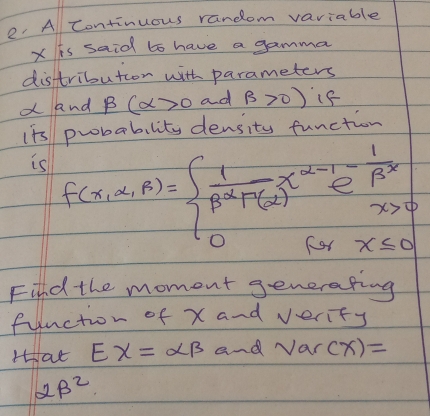 e. A continuous random variable
X is said to have a gamma
distribution with parameters
α and β (α>0 ad β>0) if
its probability density function
is
f(x,α,β) = { 1/(β^α Γ(α)) x^(α-1) e^(-1/β x) x>0
0 for x≤0
Find the moment generating
function of X and verify
that EX = αβ and Var(X) =
2β².